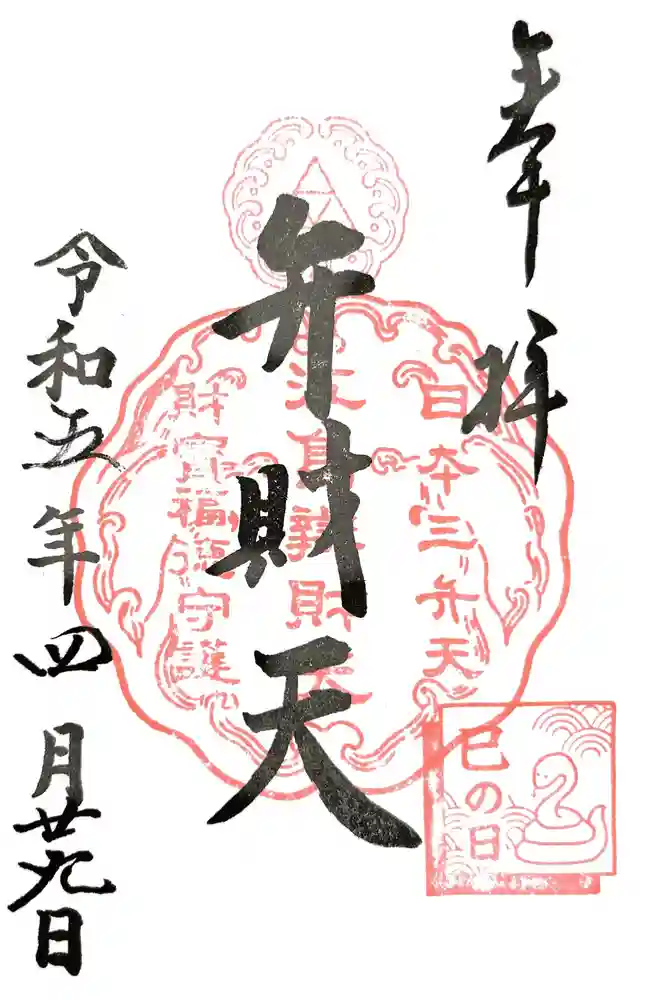 奉拝
日本三弁天
江島辨財天
財寶福德守護
弁財天
令和五年四月廿九日
巳の日